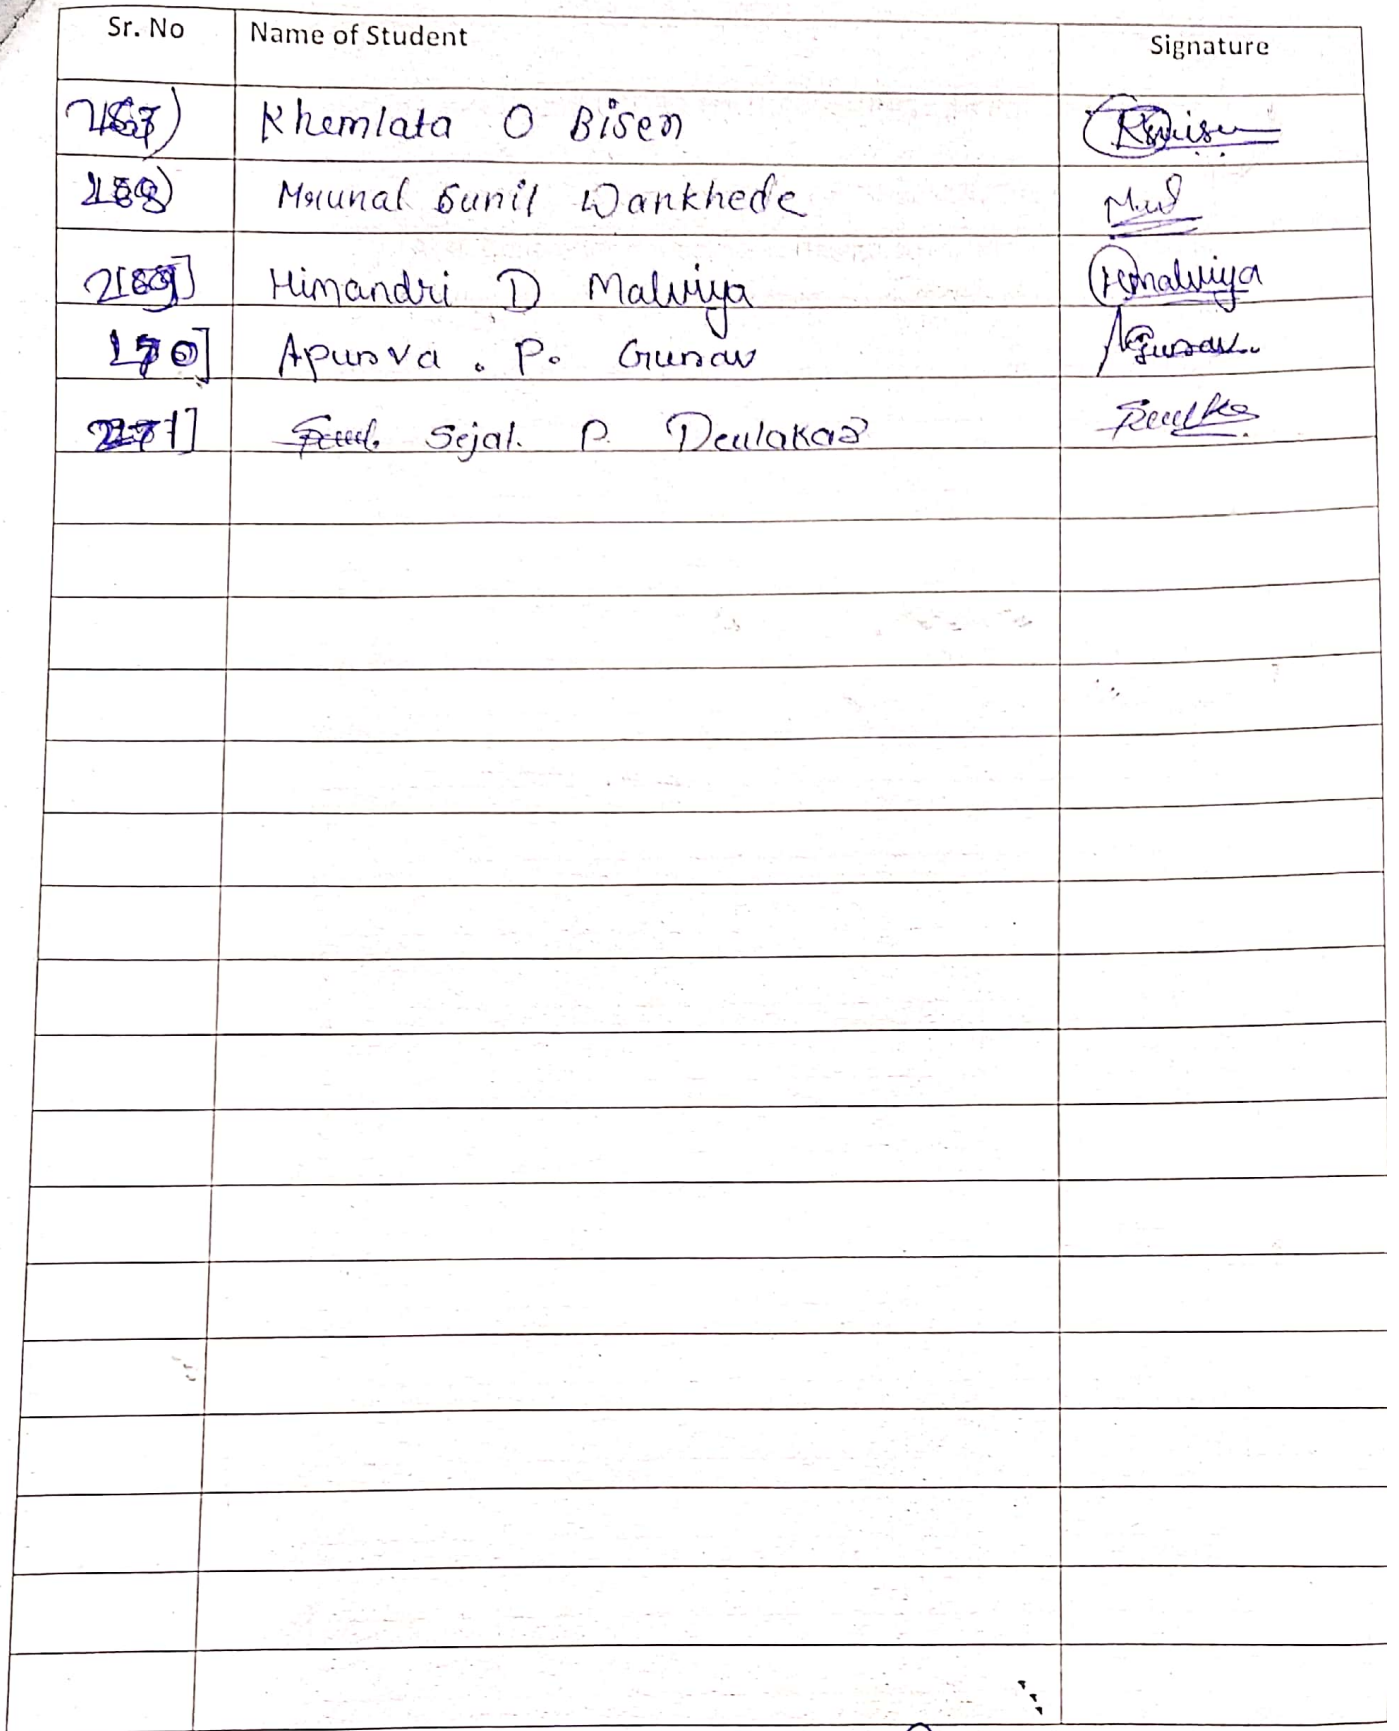 Sr. No Name of Student Signature
Khemlata O Bisen
Mrunal Sunil Wankhede M.W
Himandri D Malviya Hmalviya
170] Apurva . P. Gurav Gurav.
Sejal. P. Deulakar